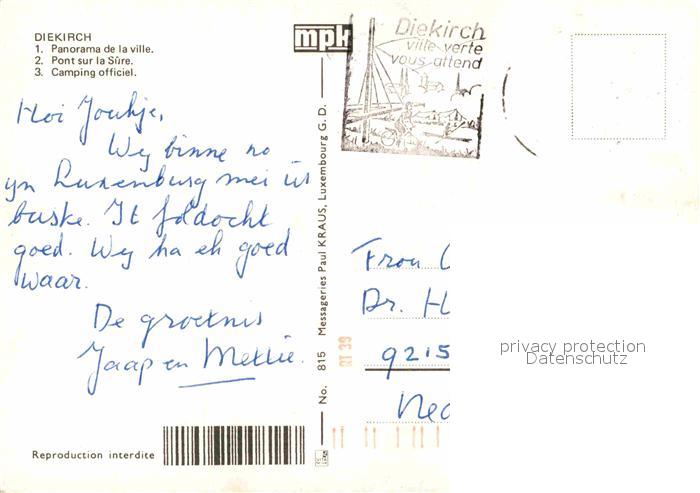 DIEKIRCH
1. Panorama de la ville.
2. Pont sur la Sûre.
3. Camping officiel.
mpk
Diekirch
ville verte
vous attend
Hoi Joukje,
Wy binne no
yn Luxemburg mei ús
buske. It foldocht
goed. Wy ha ek goed
waar.
De groetnis
Jaap en Mettie.
No. 815 Messageries Paul KRAUS, Luxembourg G. D.
RT 39
Frou
Dr. H
9215
Ned
privacy protection
Datenschutz
Reproduction interdite